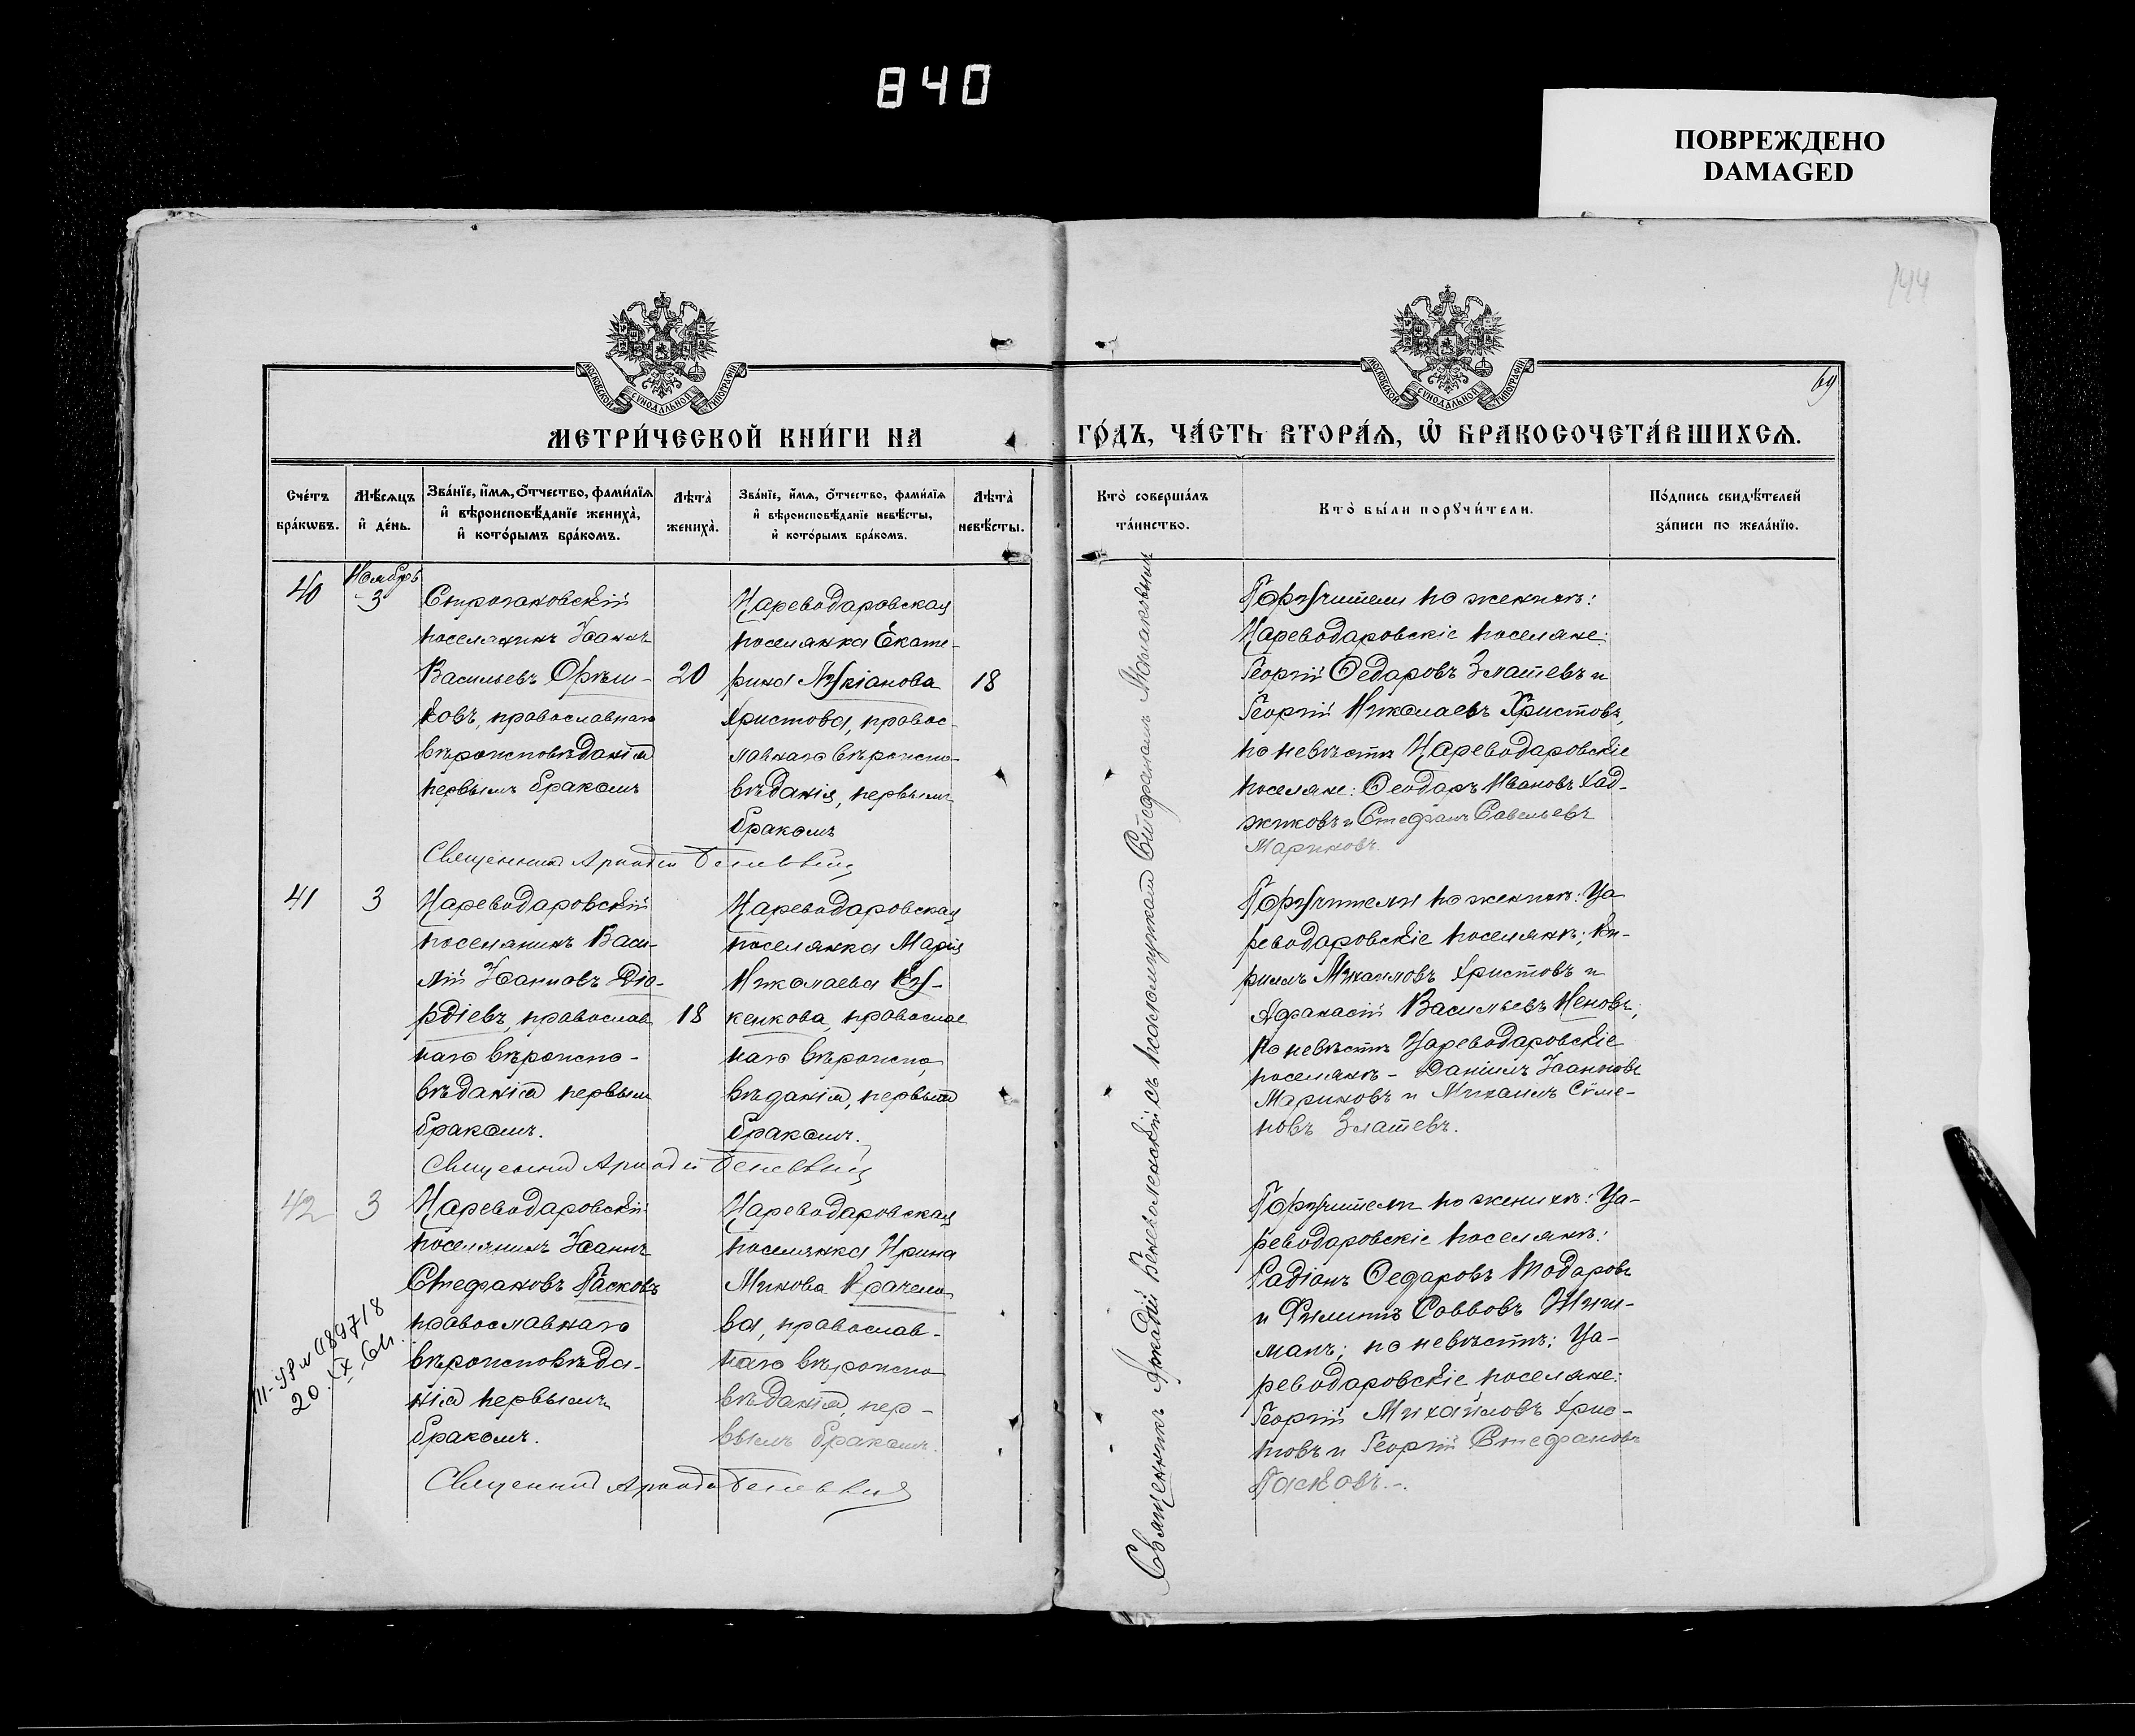 840
ПОВРЕЖДЕНО
DAMAGED
69
МОСКОВСКОЙ СѴНОДАЛЬНОЙ ТИПОГРАФІИ
МОСКОВСКОЙ СѴНОДАЛЬНОЙ ТИПОГРАФІИ
МЕТРИ́ЧЕСКОЙ КНИ́ГИ НА ГО́ДЪ, ЧА́СТЬ ВТОРА́Ѧ, Ѡ҆ БРАКОСОЧЕТА́ВШИХСѦ.
Сче́тъ
бра́кѡвъ.
Мѣ́сѧцъ
и҆ де́нь.
Зва́нїе, и҆́мѧ, о҆́тчество, фами́лїѧ
и҆ вѣроисповѣ́данїе жениха̀,
и҆ кото́рымъ бра́комъ.
Лѣта̀
жениха̀.
Зва́нїе, и҆́мѧ, о҆́тчество, фами́лїѧ
и҆ вѣроисповѣ́данїе невѣ́сты,
и҆ кото́рымъ бра́комъ.
Лѣта̀
невѣ́сты.
Кто̀ соверша́лъ
та́инство.
Кто̀ бы́ли порꙋчи́тели.
По́дпись свидѣ́телей
за́писи по жела́нїю.
40
Ноябрь
3
Строгановскій
поселянинъ Іоаннъ
Васильевъ Орѣш-
ковъ, православнаго
вѣроисповѣданія
первымъ бракомъ
20
Цареводаровская
поселянка Екате-
рина Лукіанова
Христова, правос-
лавнаго вѣроиспо-
вѣданія, первымъ
бракомъ
18
Поручители по женихѣ:
Цареводаровскіе поселяне:
Георгій Ѳедоровъ Златевъ и
Георгій Николаевъ Христовъ,
по невѣстѣ Цареводаровскіе
поселяне: Ѳеодоръ Ивановъ Хад-
жиковъ и Стефанъ Савельевъ
Мариновъ.
Священник Аркадій
41
3
Цареводаровскій
поселянинъ Васи-
лій Іоанновъ Дю-
рдіевъ, православ
наго вѣроиспо-
вѣданія первым
бракомъ.
18
Цареводаровская
поселянка Марія
Николаева Ку-
кенкова, православ
наго вѣроиспо
вѣданія, первымъ
бракомъ.
Поручители по женихѣ: Ца
реводаровскіе поселянѣ; Ки-
риллъ Михаиловъ Христовъ и
Аѳанасій Васильевъ Неновъ;
по невѣстѣ Цареводаровскіе
поселянѣ - Даніилъ Іоанновъ
Мариновъ и Михаилъ Сѵме-
новъ Златевъ.
Священник Аркадій
42
3
Цареводаровскій
поселянинъ Іоаннъ
Стефановъ Пасковъ
православнаго
вѣроисповѣда-
нія первымъ
бракомъ.
Цареводаровская
поселянка Ирина
ва, православ-
наго вѣроиспо
вѣданія, пер-
вымъ бракомъ.
Поручители по женихѣ: Ца-
реводаровскіе поселянѣ:
Радіонъ Ѳедоровъ Тодоровъ
и Филиппъ Саввовъ Шиш-
манъ; по невѣстѣ: Ца-
реводаровскіе поселяне:
Георгій Михайловъ Хрис-
товъ и Георгій Стефановъ
Пасковъ.-.
Священник Аркадій
Священникъ Аркадій Беневоленскій съ псаломщикомъ Стефаномъ